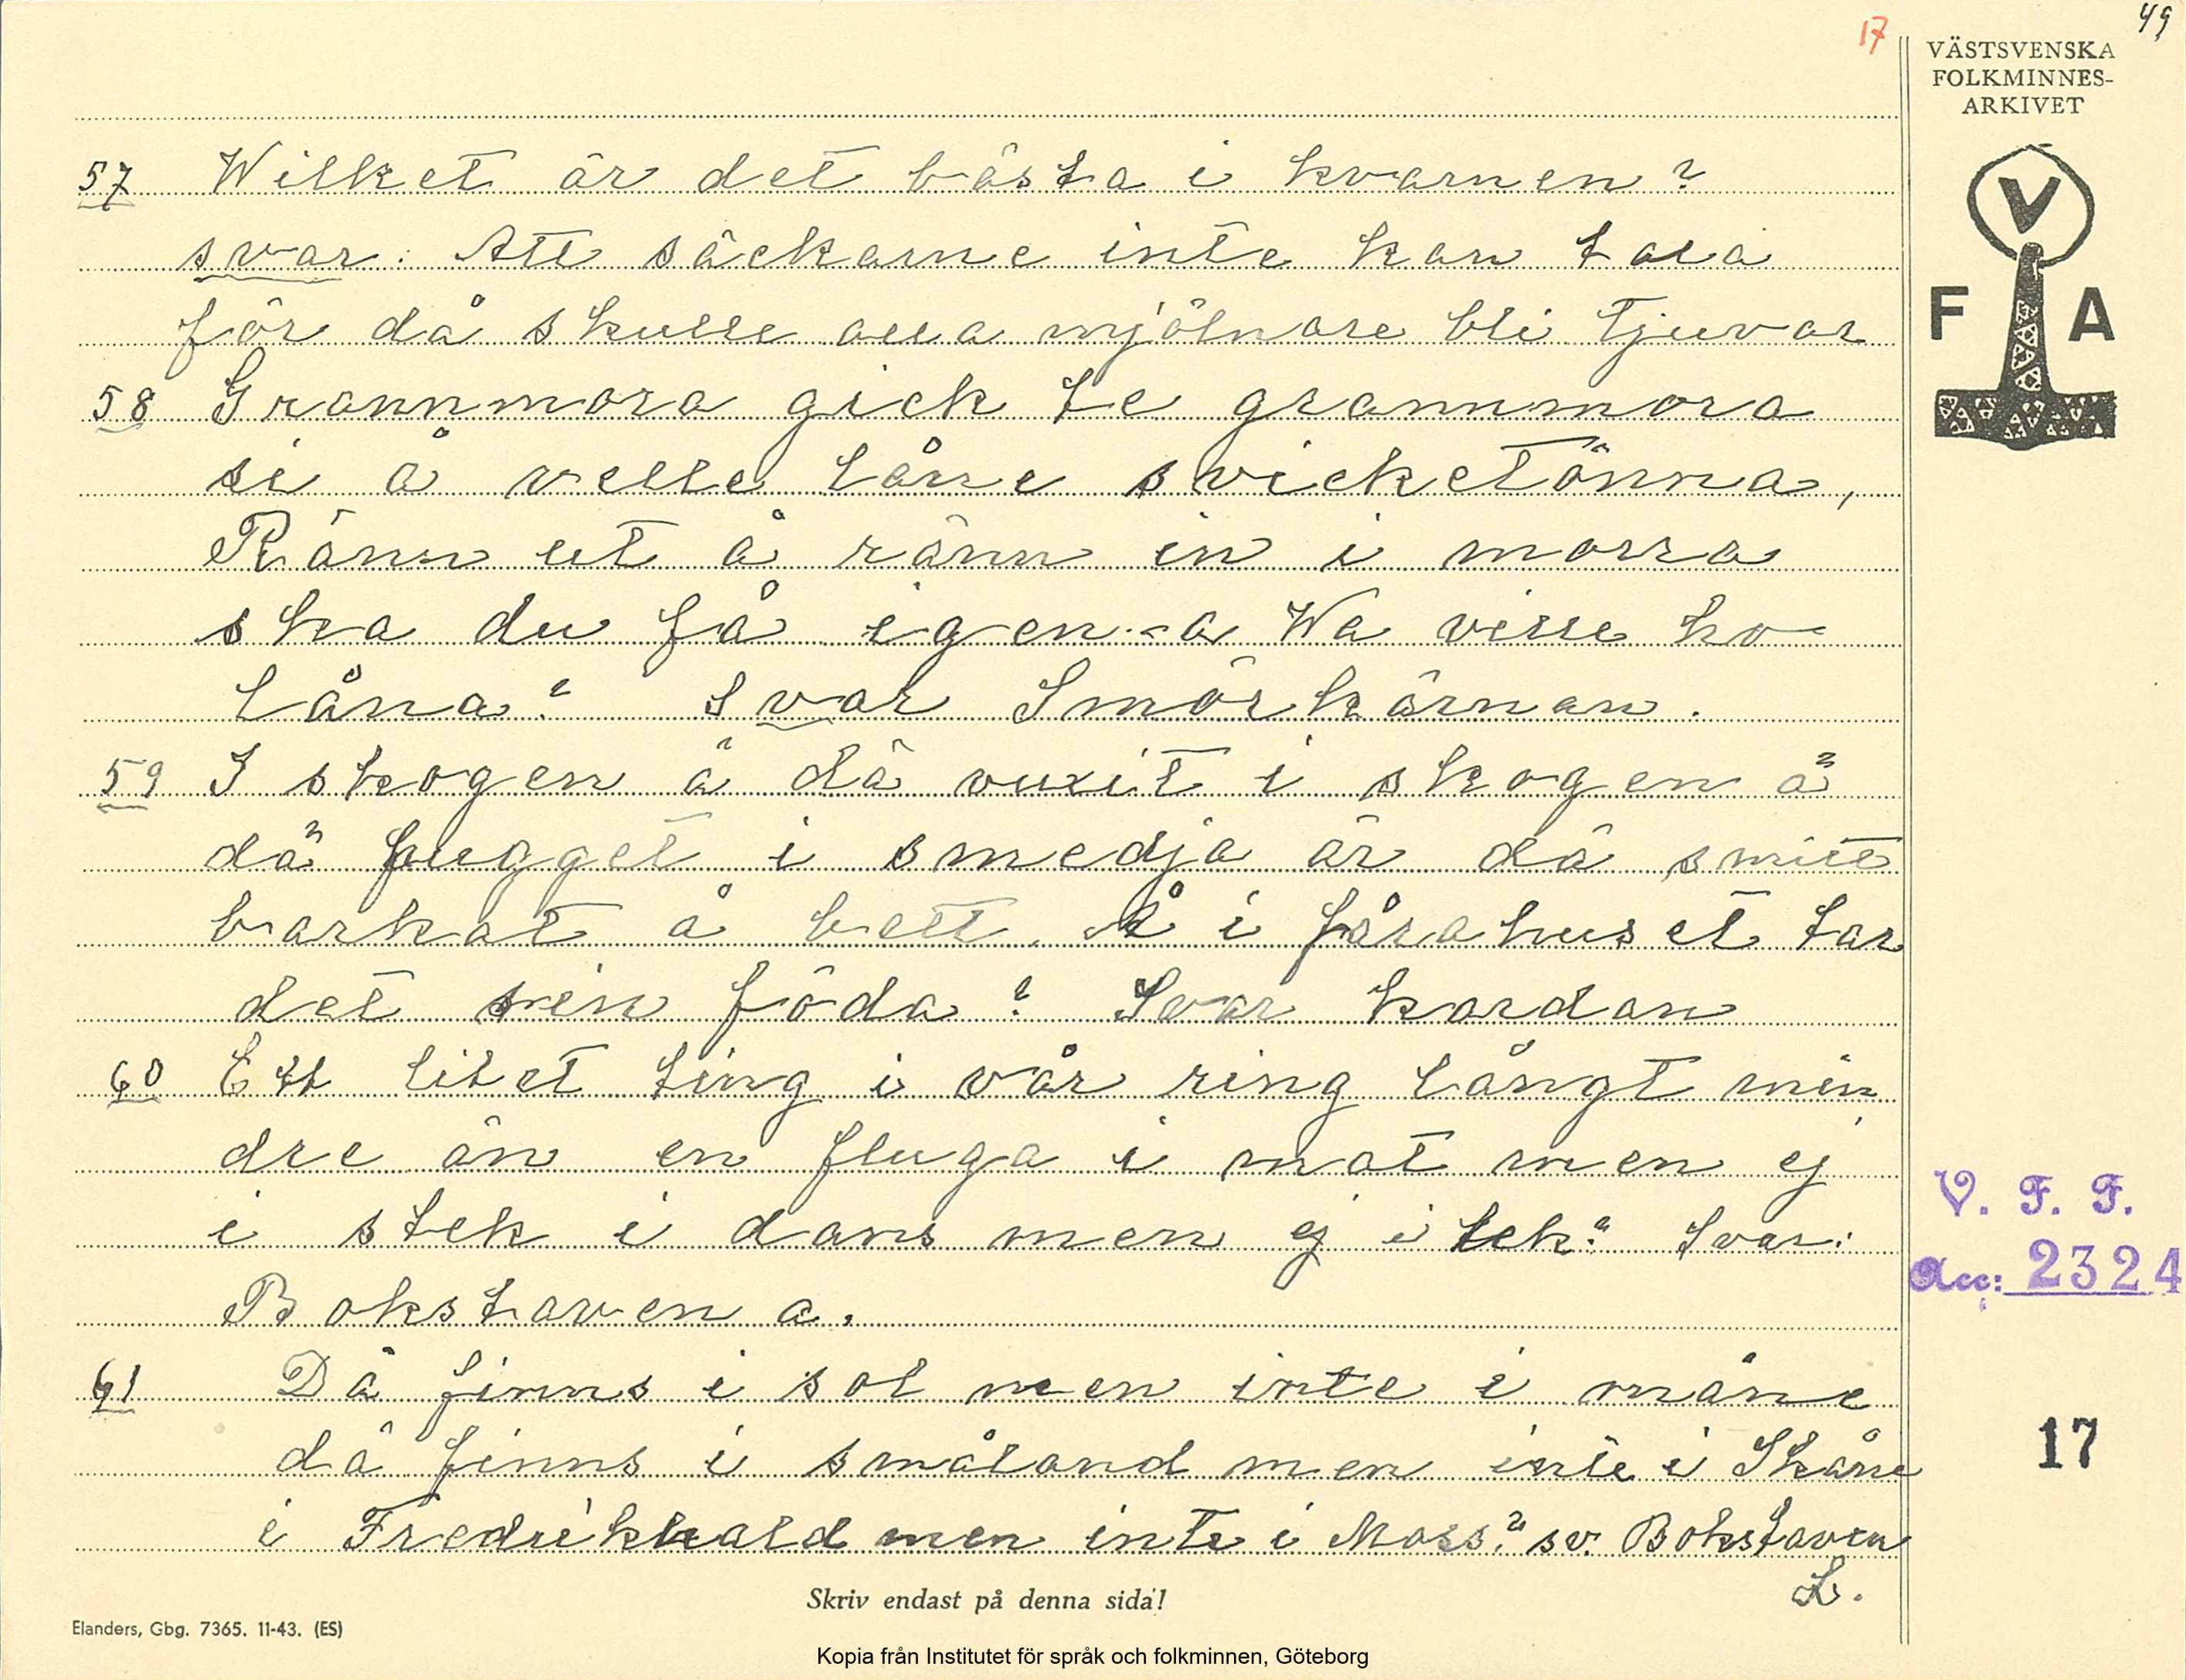 17
49
VÄSTSVENSKA
FOLKMINNES-
ARKIVET
V
F A
57 Wilket är det bästa i kvarnen?
svar: Att säckarne inte kan tala
för då skulle alla mjölnare bli tjuvar
58 Grannmora gick te grannmora
si å velle låne svicketönna,
Ränn ut å ränn in i morra
ska du få igen-a Wa ville ho
låna? Svar Smörkärnan.
59 I skogen ä dä vuxit i skogen ä
dä hugget i smedja är dä smitt
barkat å bett. Å i fårahuset tar
det sin föda? Svar kardan
60 Ett litet ting i vår ring långt min
dre än en fluga i mat men ej
i stek i dans men ej i lek? Svar:
Bokstaven a.
61 Dä finns i sol men inte i måne
dä finns i småland men inte i Skåne
i Fredrikhald men inte i Moss? sv. Bokstaven
L.
V. F. F.
Acc: 2324
17
Skriv endast på denna sida!
Elanders, Gbg. 7365. 11-43. (ES)
Kopia från Institutet för språk och folkminnen, Göteborg